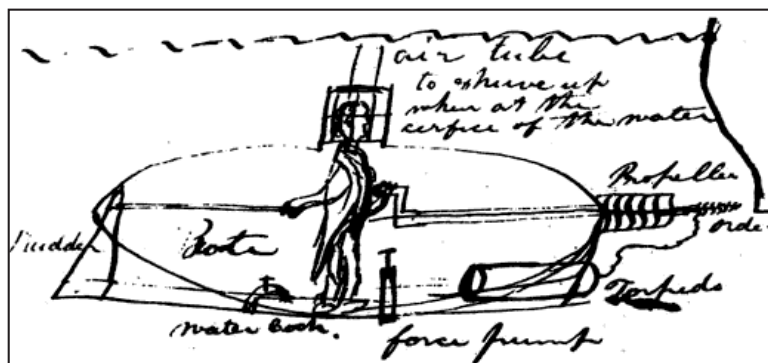 air tube
to shuve up
when at the
serfice of the water
Propeller
Rudder
Torpedo
water Cock.
force pump